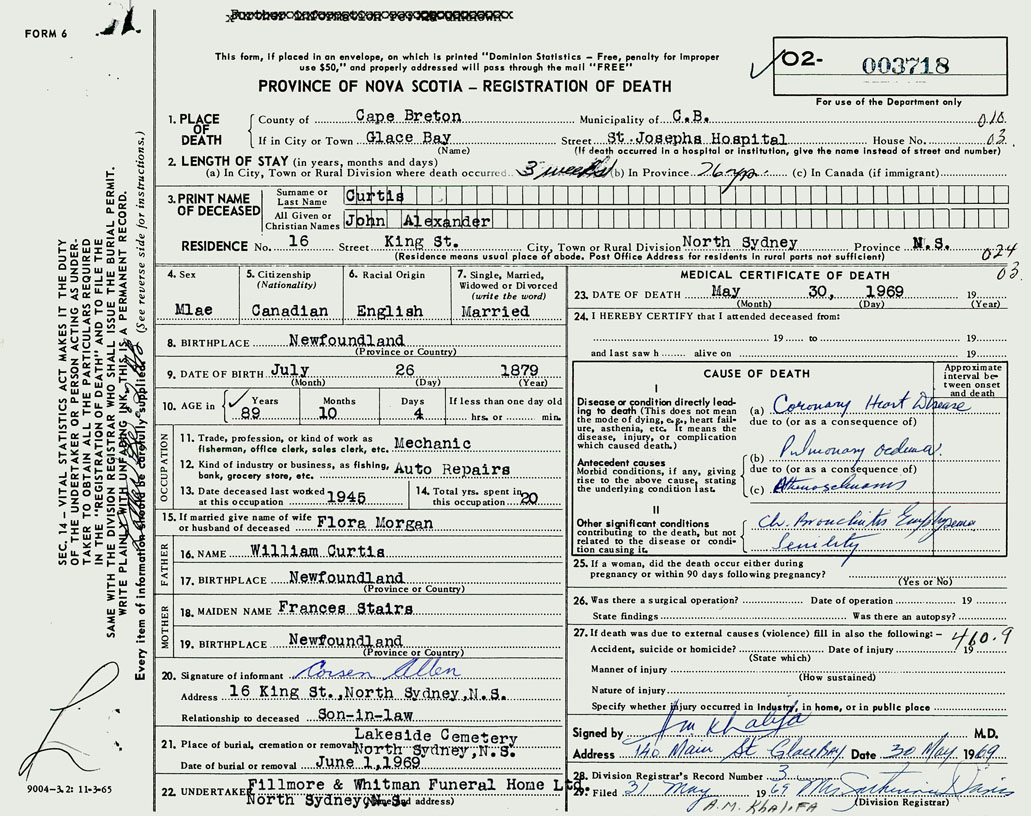 Further information rec
FORM 6
This form, if placed in an envelope, on which is printed "Dominion Statistics — Free, penalty for improper
use $50," and properly addressed will pass through the mail "FREE"
PROVINCE OF NOVA SCOTIA — REGISTRATION OF DEATH
02- 003718
For use of the Department only
SEC. 14 — VITAL STATISTICS ACT MAKES IT THE DUTY
OF THE UNDERTAKER OR PERSON ACTING AS UNDER-
TAKER TO OBTAIN ALL THE PARTICULARS REQUIRED
IN THE "REGISTRATION OF DEATH" AND TO FILE THE
SAME WITH THE DIVISION REGISTRAR WHO SHALL ISSUE THE BURIAL PERMIT.
WRITE PLAINLY WITH UNFADING INK, THIS IS A PERMANENT RECORD.
Every item of information should be carefully supplied. (See reverse side for instructions.)
1. PLACE OF DEATH
County of Cape Breton Municipality of C.B. 010
If in City or Town Glace Bay Street St. Josephs Hospital House No. 03
(Name) (If death occurred in a hospital or institution, give the name instead of street and number)
2. LENGTH OF STAY (in years, months and days)
(a) In City, Town or Rural Division where death occurred 3 weeks (b) In Province 26 yrs. (c) In Canada (if immigrant)
3. PRINT NAME OF DECEASED
Surname or Last Name Curtis
All Given or Christian Names John Alexander
RESIDENCE No. 16 Street King St. City, Town or Rural Division North Sydney Province N.S. 024
(Residence means usual place of abode. Post Office Address for residents in rural parts not sufficient) 03
4. Sex Mlae
5. Citizenship (Nationality) Canadian
6. Racial Origin English
7. Single, Married, Widowed or Divorced (write the word) Married
8. BIRTHPLACE Newfoundland
(Province or Country)
9. DATE OF BIRTH July 26 1879
(Month) (Day) (Year)
10. AGE in Years 89 Months 10 Days 4 If less than one day old hrs. or min.
OCCUPATION
11. Trade, profession, or kind of work as fisherman, office clerk, sales clerk, etc. Mechanic
12. Kind of industry or business, as fishing, bank, grocery store, etc. Auto Repairs
13. Date deceased last worked at this occupation 1945
14. Total yrs. spent in 20
15. If married give name of wife or husband of deceased Flora Morgan
FATHER
16. NAME William Curtis
17. BIRTHPLACE Newfoundland
(Province or Country)
MOTHER
18. MAIDEN NAME Frances Stairs
19. BIRTHPLACE Newfoundland
(Province or Country)
20. Signature of informant Corsen Allen
Address 16 King St., North Sydney, N.S.
Relationship to deceased Son-in-law
21. Place of burial, cremation or removal Lakeside Cemetery
North Sydney, N.S.
Date of burial or removal June 1, 1969
22. UNDERTAKER Fillmore & Whitman Funeral Home Ltd.
North Sydney, N.S. (Name and address)
MEDICAL CERTIFICATE OF DEATH
23. DATE OF DEATH May 30, 1969 19
(Month) (Day) (Year)
24. I HEREBY CERTIFY that I attended deceased from:
19 to 19
and last saw h alive on 19
CAUSE OF DEATH
Approximate interval between onset and death
I
Disease or condition directly leading to death (This does not mean the mode of dying, e.g., heart failure, asthenia, etc. It means the disease, injury, or complication which caused death.)
(a) Coronary Heart Disease
due to (or as a consequence of)
Antecedent causes
Morbid conditions, if any, giving rise to the above cause, stating the underlying condition last.
(b) Pulmonary oedema.
due to (or as a consequence of)
(c)
II
Other significant conditions contributing to the death, but not related to the disease or condition causing it.
Ch. Bronchitis Emphysema
Senility
25. If a woman, did the death occur either during
pregnancy or within 90 days following pregnancy?
(Yes or No)
26. Was there a surgical operation? Date of operation 19
State findings Was there an autopsy?
27. If death was due to external causes (violence) fill in also the following: — 460.9
Accident, suicide or homicide? Date of injury 19
(State which)
Manner of injury
(How sustained)
Nature of injury
Specify whether injury occurred in industry, in home, or in public place
Signed by Khalifa M.D.
Address 140 Main St Glace Bay Date 30 May 1969
28. Division Registrar's Record Number 3
29. Filed 31 May 1969 Mrs Davis
A.M. KHALIFA (Division Registrar)
9004-3.2: 11-3-65